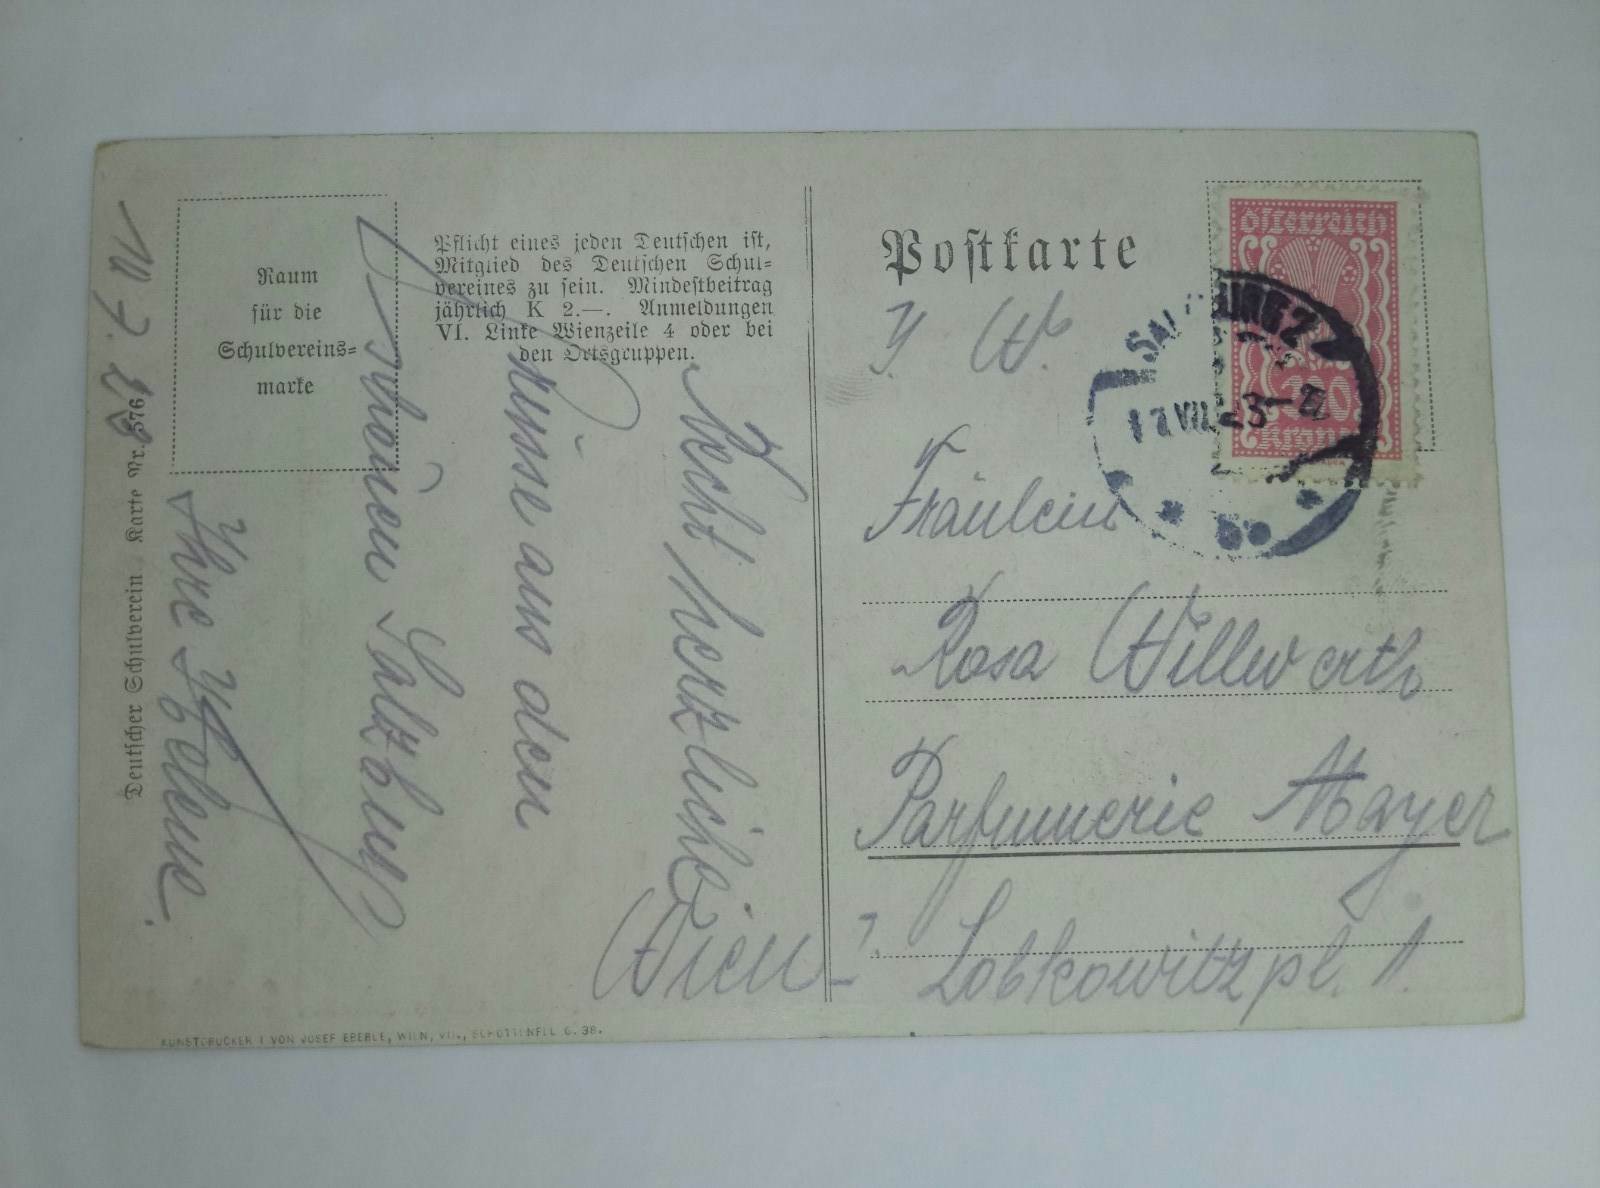 Raum
für die
Schulvereins=
marke
Pflicht eines jeden Deutschen ist,
Mitglied des Deutschen Schul=
vereines zu sein. Mindestbeitrag
jährlich K 2.—. Anmeldungen
VI. Linke Wienzeile 4 oder bei
den Ortsgruppen.
Deutscher Schulverein Karte Nr. 376
Recht herzliche
Grüsse aus dem
schönen Salzburg
Ihre
KUNSTDRUCKEREI VON JOSEF EBERLE, WIEN, VII., SCHOTTENFELDG. 38.
Postkarte
Österreich
Kronen
SALZBURG 2
VII 23
Fräulein
Rosa Willwerth
Parfumerie Mayer
Wien - 7.
Lobkowitzpl. 1.